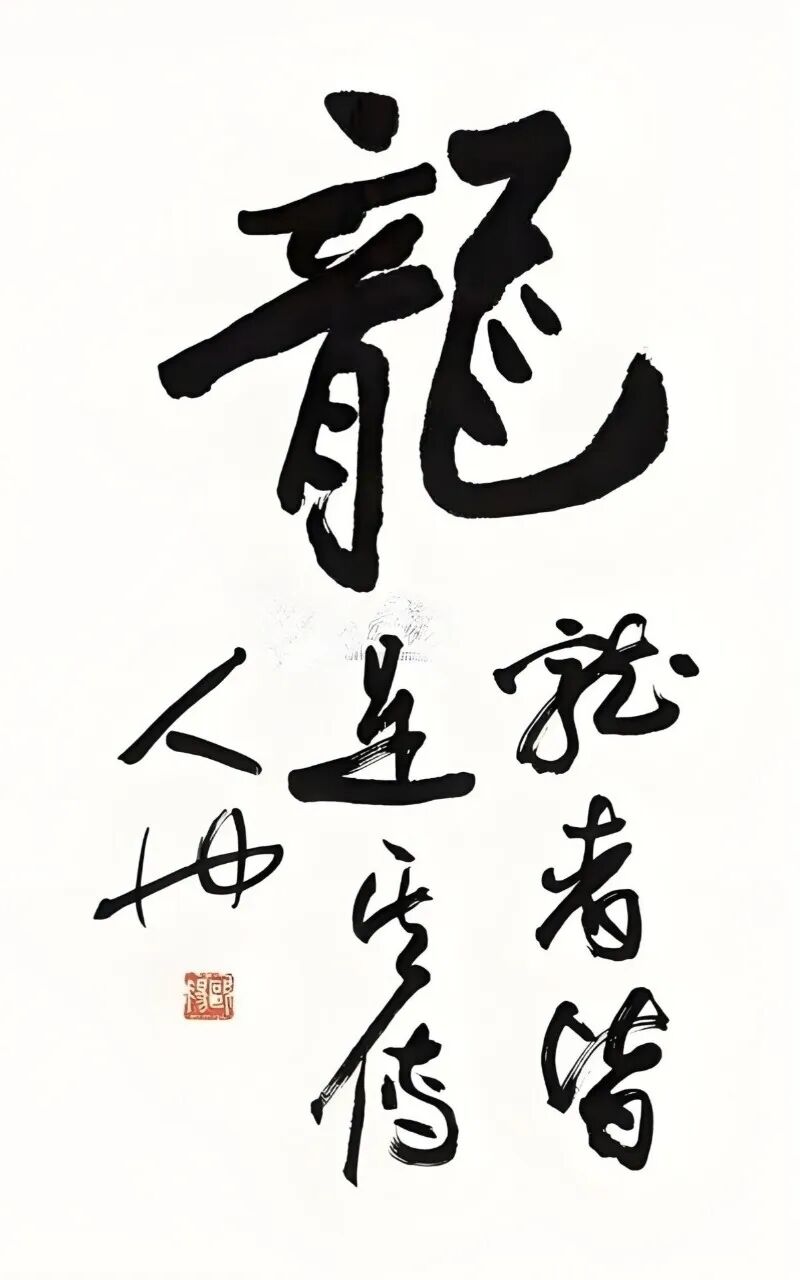 龍
龍者皆
是其傳
人也